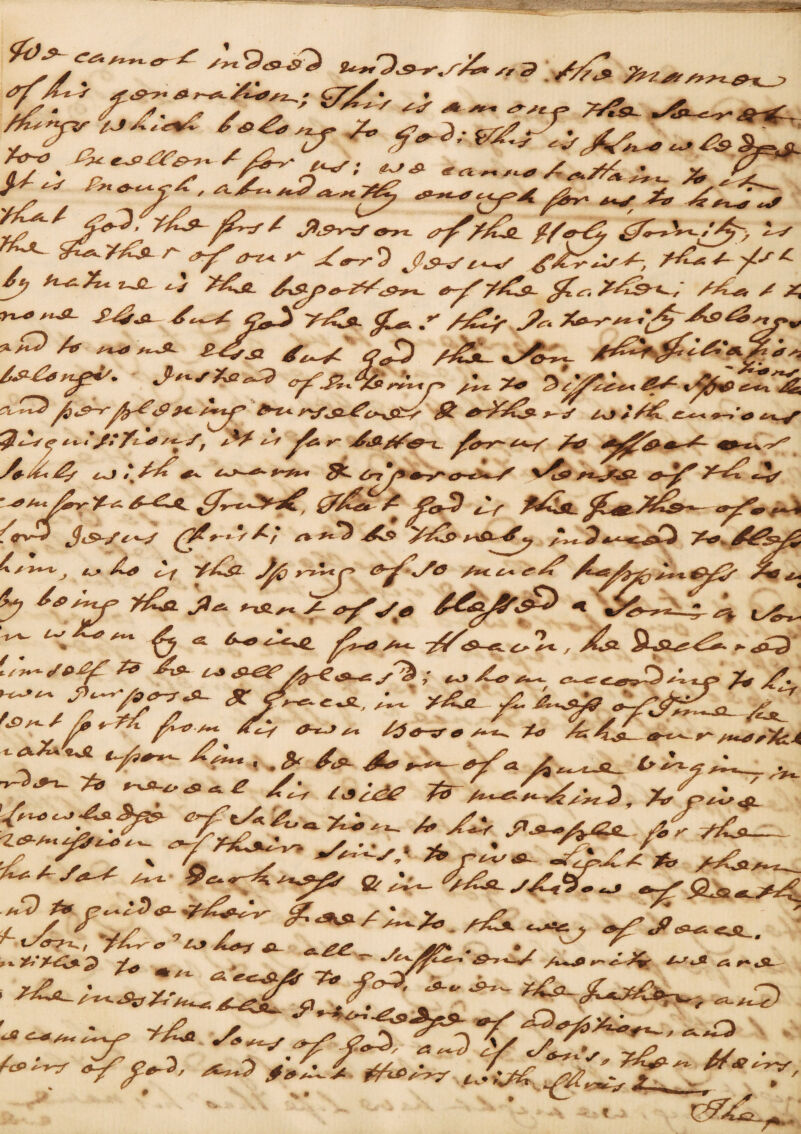 We cannot indeed understand the manner
of his generation; This is among the secret
things which belong to God: This is Knowledge
too Excellent for us; we cannot attain to it
It is Enough, abundantly enough for us, to know
that God, the first Person of the Holy Trinity, is
the Father of our Lord Jesus Christ, that Xst
by nature is the begotten of the Father; that to
none Else but God the Fa.r this Paternity belongs
and to none Else but God the Son this Filiation
belongs. Instead of Entering into difficult Specula
-tions
and perplexing ourselves & others with curious
Disquisitions, it is far better for us to affect our
Souls with a warm & vigorous Sense of this
comfortable Truth, That God is the Father of our
Lord Jesus Christ; and be thereby induced to bless
him, who is the Spring of so much happiness to us
by being the Parent of so blessed a Son; a Son
in whom by a voice from Heav'n, he declared
himself to be well pleas'd; whom, according to his
own Purpose & Grace, in the fulness of Time he
sent forth from his own Bosom to take our mortal
nature upon him, & be born of a pure Virgin, in
order to reveal his will to mankind, to give
Knowledge of Salvation to his People for the
Remission of their Sins; to give Light to them
that sat in Darkness & in the shadow of Death,
and to guide their Feet into the way of Peace.
Son, thro' whose all-sufficient merits we are
entitled to an access to God, even the Father, and
the inestimable Priviledge of adoption, and
becoming the Sons of God, and if Sons, then Heirs,
Heirs of God, and joint Heirs with Christ
The